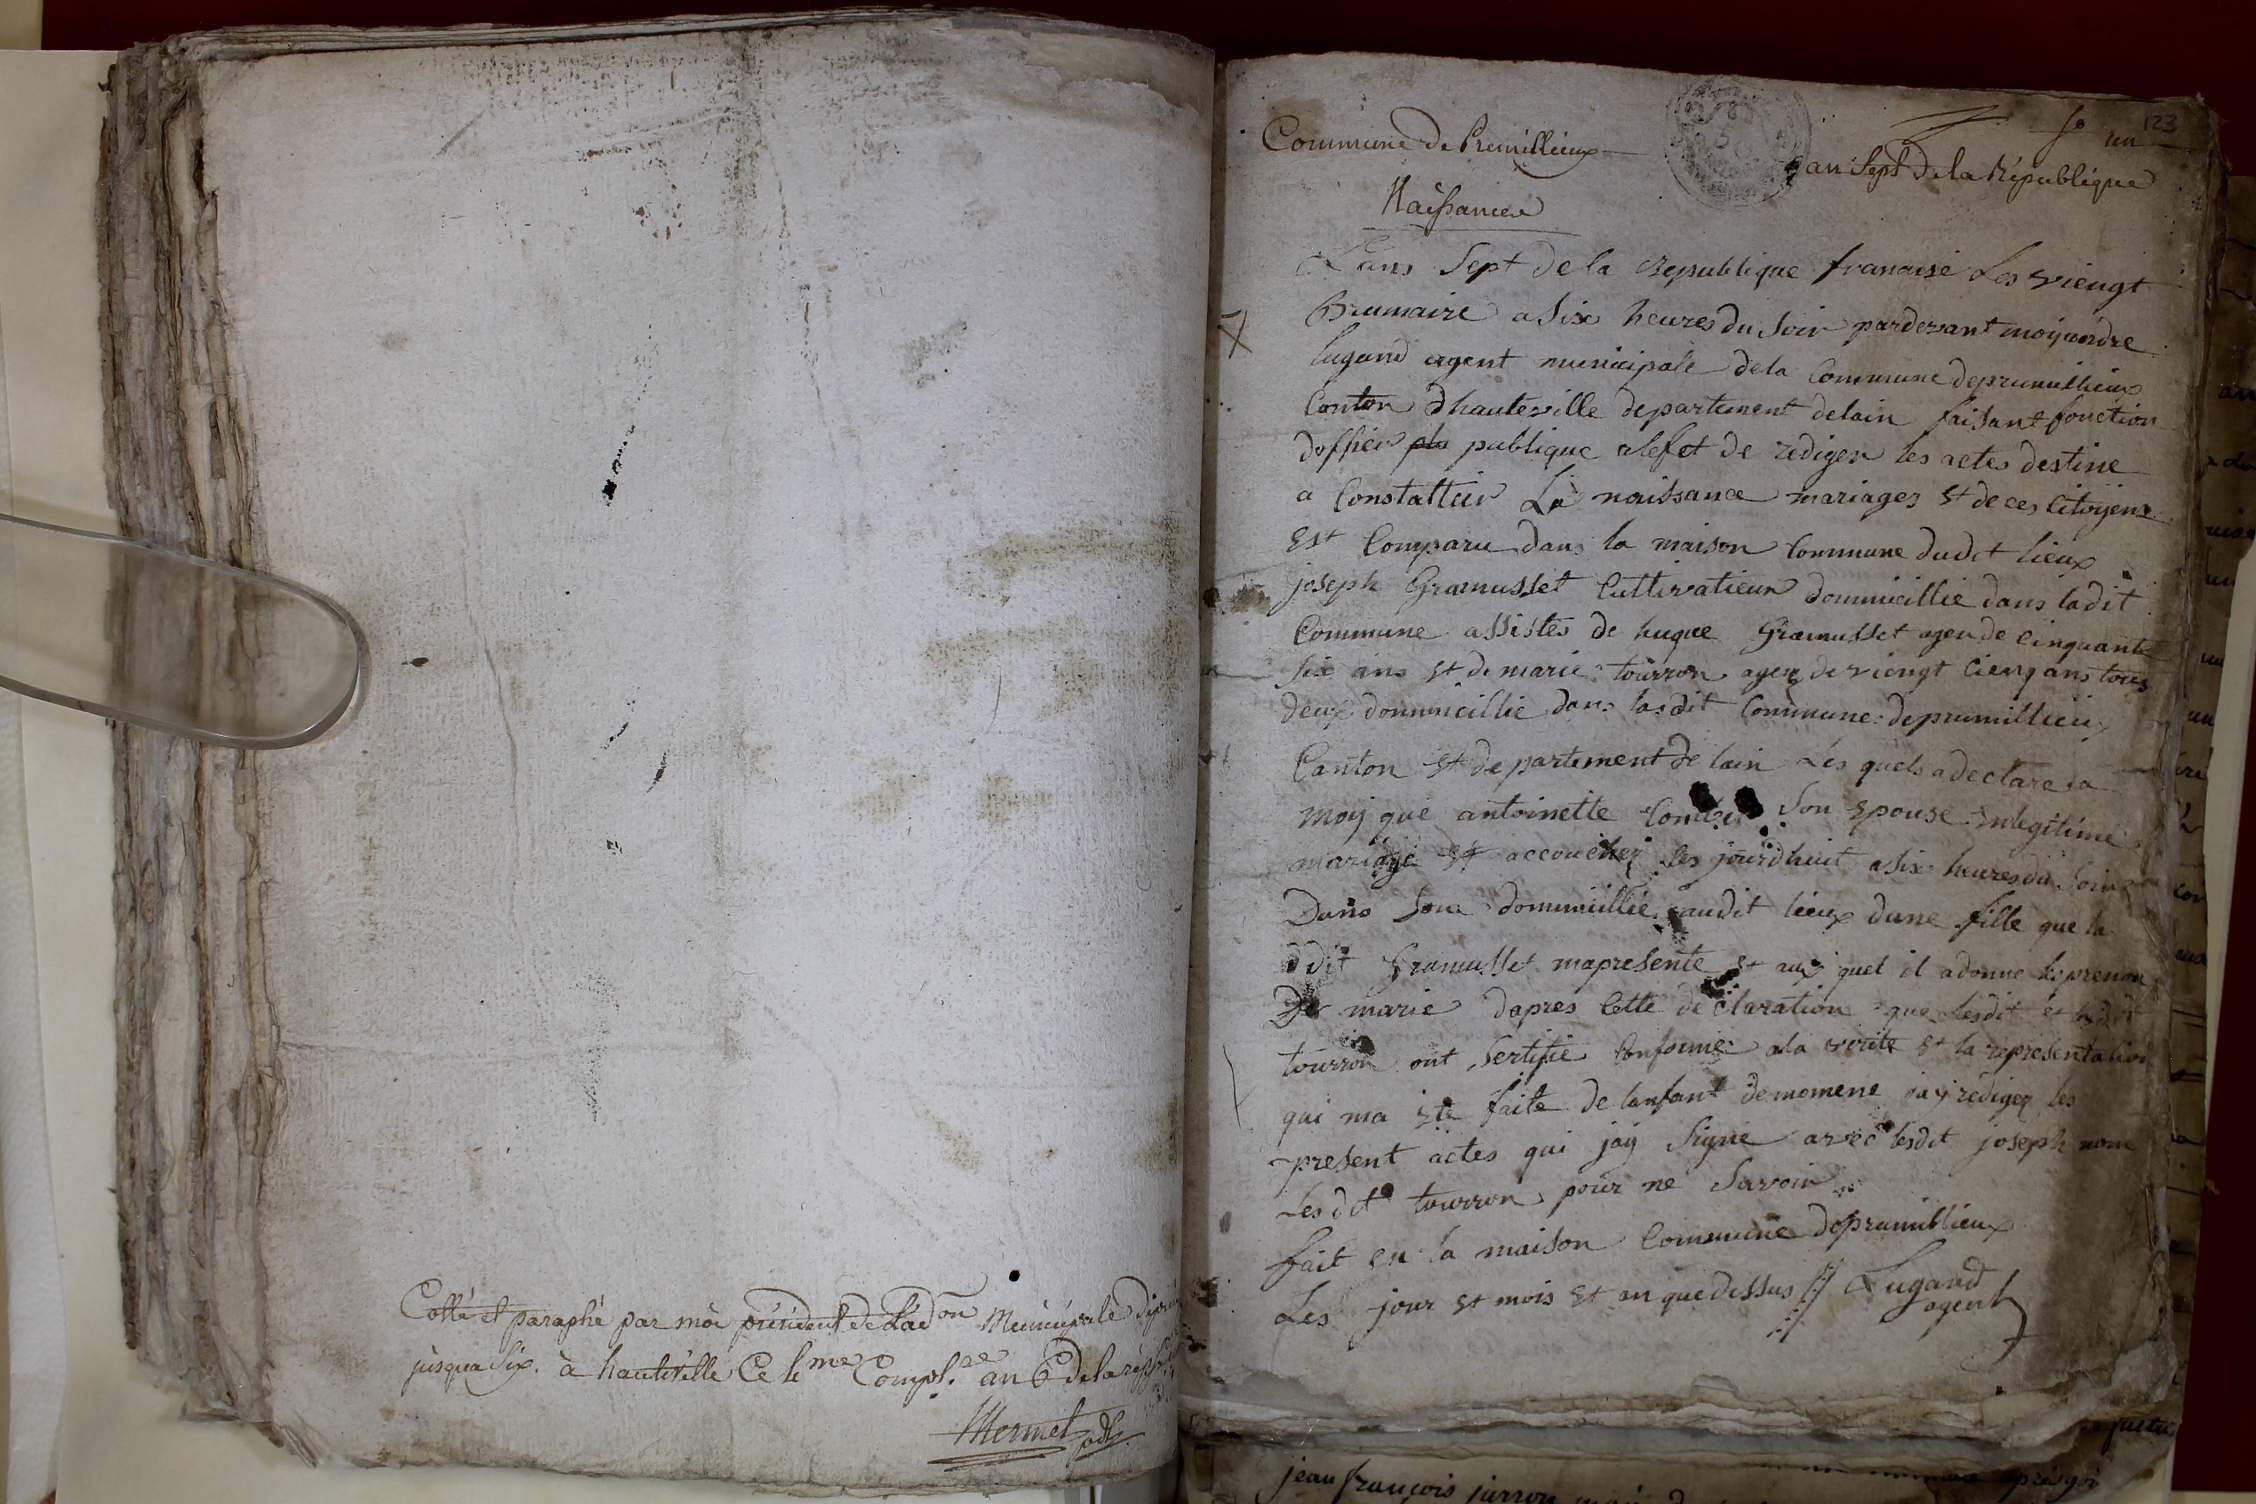 Cotté et paraphé par moi président de l'ad.on Municipale
jusqua Six. à hauteville Ce 6me Compl.re an 6 de la rép
Mermet adt.
123
fo un
Commune de Premillieux
an Sept de la République
Naissances
L'ans Sept de la republique franaise Les viengt
Brumaire a Six heures du Soir pardevant moy andre
lugand agent municipale de la Commune deprumillieux
Canton dhauteville departement delain faisant fonction
doffier publique alefet de rediger les actes destine
a Constatter La naissance mariages et deces Citoyens
Est Comparu dans la maison Commune dudit lieux
joseph Gramusset Cultivatieur dommicillie dans ladit
Commune assistes de hugue Gramusset ager de cinquante
six ans et de marie tourron ager de viengt cienq ans tous
deux dommicillie dans lasdit Commune deprumillieux
Canton et departement de lain Les quels adeclare a
moy que antoinette Son epouse en legitime
mariage et accoucher les jourdhuit asix heures du Soir
Dans Son dommicillie audit lieux dune fille que la
ddit Gramusset mapresente et aux quel il adonne les prenon
De marie dapres Cette declaration que lesdit et lesdit
tourron ont Sertifie Conforme ala verite et la representation
qui ma ete faite de lanfant denomene jay rediger les
present actes qui jay Signe avec lesdit joseph nom
Les dit tourron pour ne Savoir
fait en la maison Commune deprumillieux
Les jour et mois et an que dessus Lugand
agent
jean françois